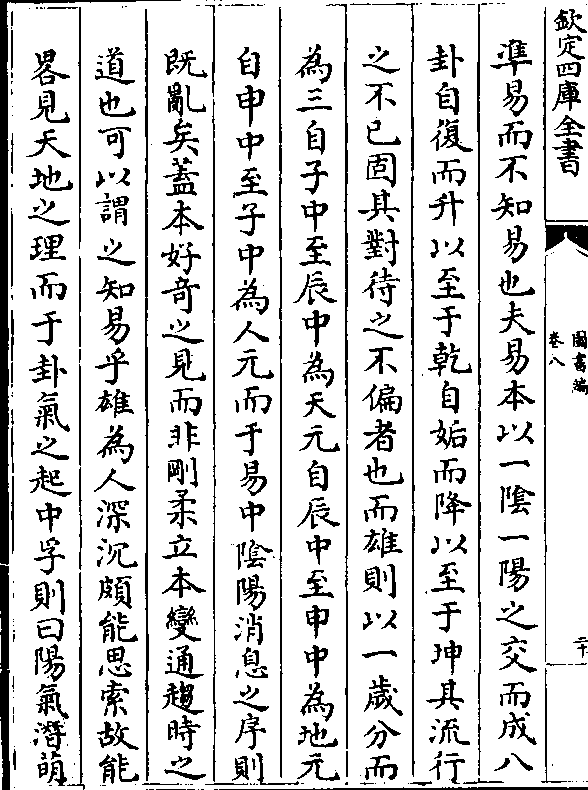 欽定四庫全書
圖書編
卷八
二十
準易而不知易也夫易本以一陰一陽之交而成八
卦自復而升以至于乾自姤而降以至于坤其流行
之不已固其對待之不偏者也而雄則以一歲分而
為三自子中至辰中為天元自辰中至申中為地元
自申中至子中為人元而于易中陰陽消息之序則
既亂矣蓋本好奇之見而非剛柔立本變通趨時之
道也可以謂之知易乎雄為人深沉頗能思索故能
畧見天地之理而于卦氣之起中孚則曰陽氣潛萌